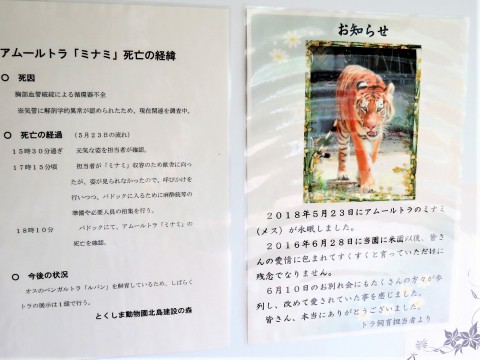 アムールトラ「ミナミ」死亡の経緯
○ 死因
胸部血管破綻による循環器不全
※気管に解剖学的異常が認められたため、現在関連を調査中。
○ 死亡の経過 (5月23日の流れ)
15時30分過ぎ 元気な姿を担当者が確認。
17時15分頃 担当者が「ミナミ」収容のため獣舎に向っ
たが、姿が見られなかったので、呼びかけを
行いつつ、パドックに入るために麻酔銃等の
準備や必要人員の招集を行う。
18時10分 パドックにて、アムールトラ「ミナミ」の
死亡を確認。
○ 今後の状況
オスのベンガルトラ「ルパン」を飼育しているため、しばらく
トラの展示は1頭で行う。
とくしま動物園北島建設の森
お知らせ
2018年5月23日にアムールトラのミナミ
(メス)が永眠しました。
2016年6月28日に当園に来園以後、皆さ
んの愛情に包まれてすくすくと育っていただけに
残念でなりません。
6月10日のお別れ会にもたくさんの方々が参
列し、改めて愛されていた事を感じました。
皆さん、本当にありがとうございました。
トラ飼育担当者より